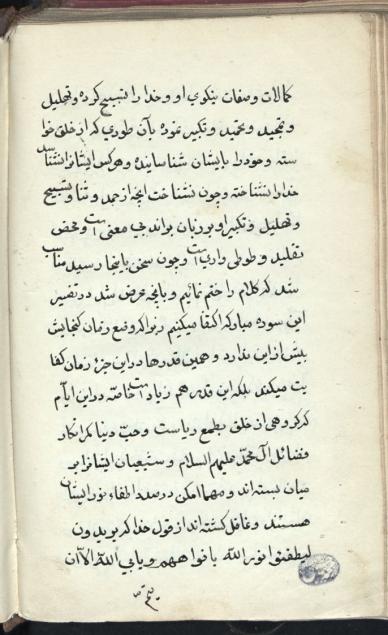 کمالات و صفات نیکوی او و خدا را تسبیح کرده و تهلیل
و تمجید و تحمید و تکبیر نموده بآن طوری که از خلق خوا
سته و خود را بایشان شناسانیده و هر کس ایشانرا نشناسد
خدا را نشناخته و چون نشناخت آنچه از حمد و ثنا و تسبیح
و تهلیل و تکبیر او بر زبان براند بی معنی است و محض
تقلید و طوطی واری است و چون سخن باینجا رسید مناسب
شد که کلام را ختم نمائیم و بآنچه عرض شد در تفسیر
این سوره مبارکه اکتفا میکنیم زیرا که وضع زمان گنجایش
بیش از این ندارد و همین قدرها در این جزء زمان کفا
یت میکند بلکه این قدر هم زیاد است خاصه در این ایام
که گروهی از خلق بطمع ریاست و حب دنیا کمر انکار
فضائل آل محمد علیهم السلام و شیعیان ایشانرا بر
میان بسته اند و مهما امکن در صدد اطفاء نور ایشان
هستند و غافل گشته اند از قول خدا که یریدون
لیطفئوا نور الله بافواههم و یابی الله الا ان
یتم